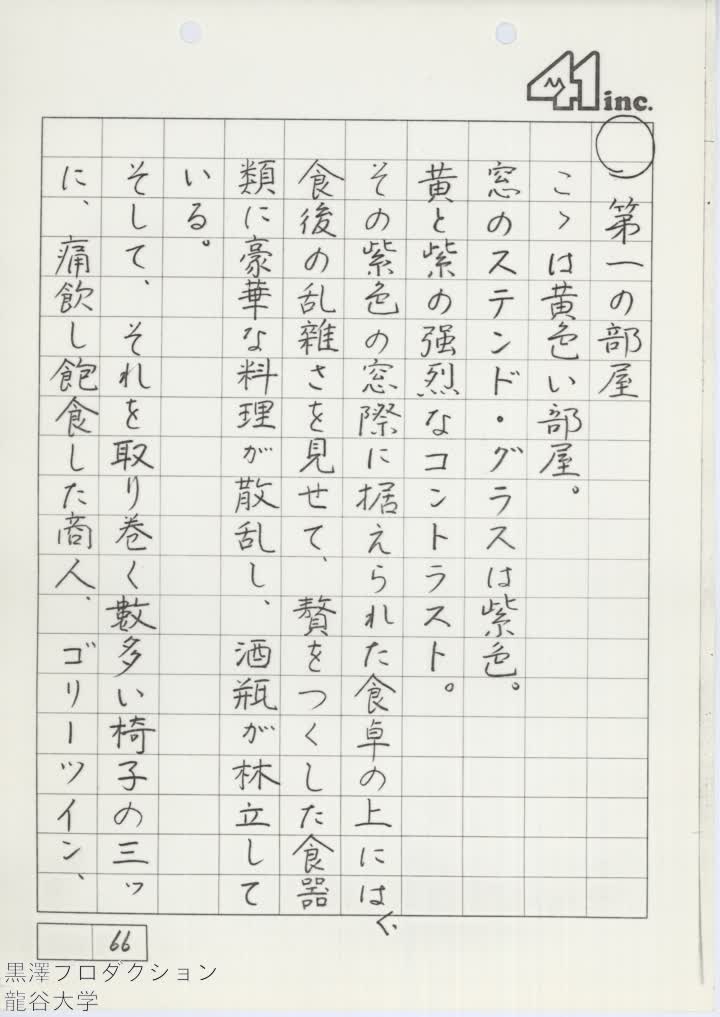 41 inc.
第一の部屋
こゝは黄色い部屋。
窓のステンド・グラスは紫色。
黄と紫の強烈なコントラスト。
その紫色の窓際に据えられた食卓の上には、
食後の乱雑さを見せて、贅をつくした食器
類に豪華な料理が散乱し、酒瓶が林立して
いる。
そして、それを取り巻く數多い椅子の三ッ
に、痛飲し飽食した商人、ゴリーツイン、
66
黒澤プロダクション
龍谷大学